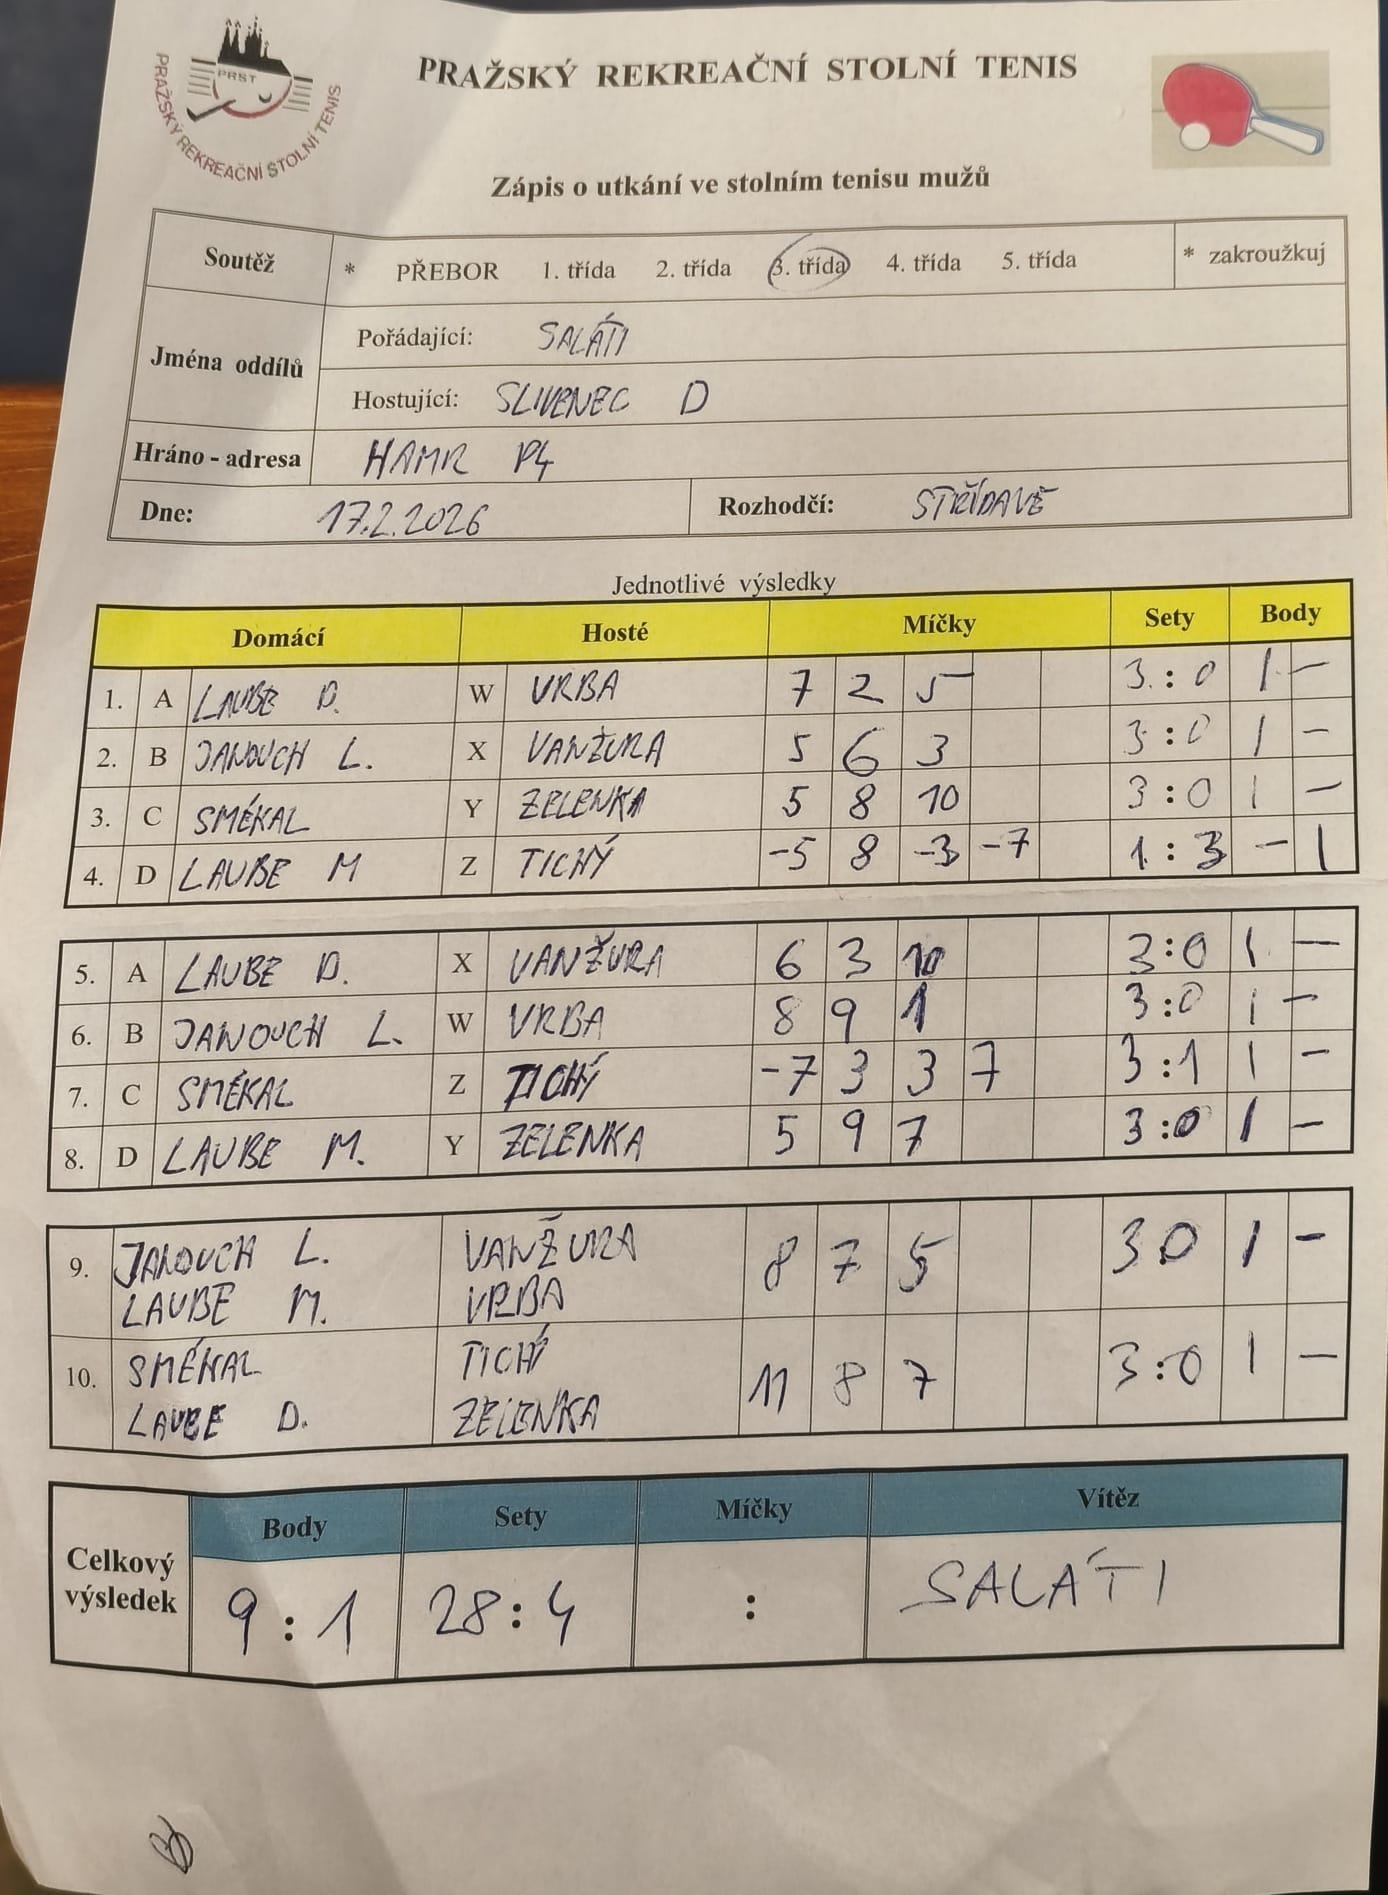 PRST
PRAŽSKÝ REKREAČNÍ STOLNÍ TENIS
PRAŽSKÝ REKREAČNÍ STOLNÍ TENIS
Zápis o utkání ve stolním tenisu mužů
Soutěž * PŘEBOR 1. třída 2. třída 3. třída 4. třída 5. třída * zakroužkuj
Jména oddílů
Pořádající: SALÁTI
Hostující: SLIVENEC D
Hráno - adresa HAMR P4
Dne: 17.2.2026 Rozhodčí: STŘÍDAVĚ
Jednotlivé výsledky
Domácí Hosté Míčky Sety Body
1. A LAUBE D. W VRBA 7 2 5 3 : 0 1 -
2. B JANOUCH L. X VANŽURA 5 6 3 3 : 0 1 -
3. C SMÉKAL Y ZELENKA 5 8 10 3 : 0 1 -
4. D LAUBE M Z TICHÝ -5 8 -3 -7 1 : 3 - 1
5. A LAUBE D. X VANŽURA 6 3 10 3 : 0 1 -
6. B JANOUCH L. W VRBA 8 9 1 3 : 0 1 -
7. C SMÉKAL Z TICHÝ -7 3 3 7 3 : 1 1 -
8. D LAUBE M. Y ZELENKA 5 9 7 3 : 0 1 -
9. JANOUCH L. VANŽURA 8 7 5 3 0 1 -
LAUBE M. VRBA
10. SMÉKAL TICHÝ 11 8 7 3 : 0 1 -
LAUBE D. ZELENKA
Celkový výsledek
Body Sety Míčky Vítěz
9 : 1 28 : 4 : SALÁTI